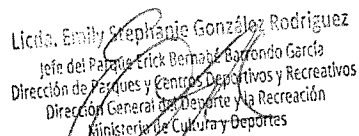 Licda. Emily Stephanie González Rodriguez
Jefe del Parque Erick Bernabé Barrondo García
Dirección de Parques y Centros Deportivos y Recreativos
Dirección General del Deporte y la Recreación
Ministerio de Cultura y Deportes